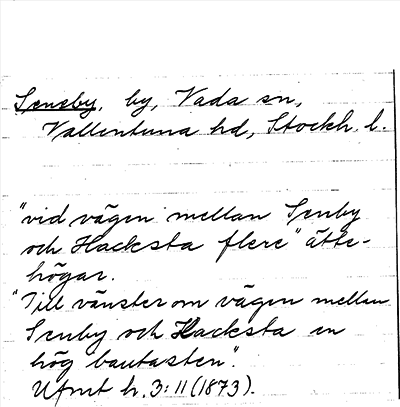 Seneby, by, Vada sn,
Vallentuna hd, Stockh. l.
"vid vägen mellan Senby
och Hacksta flere" ätte-
högar.
"Till vänster om vägen mellan
Senby och Hacksta en
hög bautasten".
Ufmt h. 3:11 (1873).